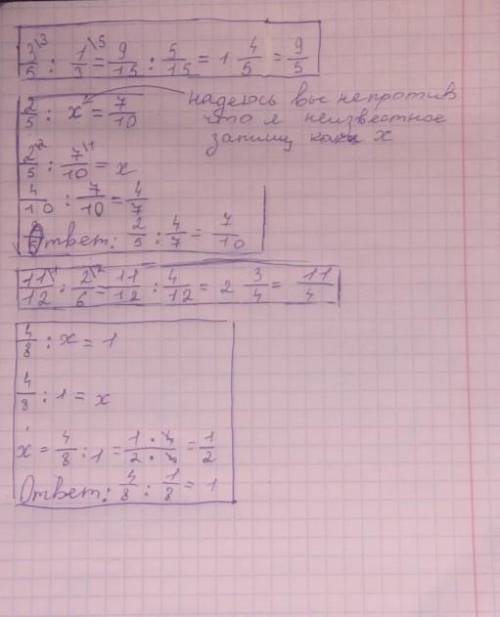 3/5 \3 : 1/3 \5 = 9/15 : 5/15 = 1 4/5 = 9/5
2/5 : x = 7/10
надеюсь вы не против
что я неизвестное
запишу как x
2/5 \2 : 7/10 \1 = x
4/10 : 7/10 = 4/7
Ответ: 2/5 : 4/7 = 7/10
11/12 \1 : 2/6 \2 = 11/12 : 4/12 = 2 3/4 = 11/4
4/8 : x = 1
4/8 : 1 = x
x = 4/8 : 1 = 1 · 4/2 · 4 = 1/2
Ответ: 4/8 : 1/8 = 1